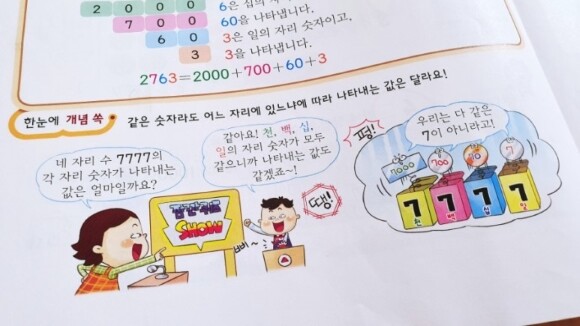 2 0 0 0
6은 십의 자
7 0 0
60을 나타냅니다.
6 0
3은 일의 자리 숫자이고,
3
3을 나타냅니다.
2763=2000+700+60+3
한눈에 개념 쏙
같은 숫자라도 어느 자리에 있느냐에 따라 나타내는 값은 달라요!
네 자리 수 7777의
각 자리 숫자가 나타내는
값은 얼마일까요?
같아요! 천, 백, 십,
일의 자리 숫자가 모두
같으니까 나타내는 값도
같겠죠~!
땡!
삐~
SHOW
펑!
우리는 다 같은
7이 아니라고!
7000
700
70
7
7 7 7 7
천 백 십 일